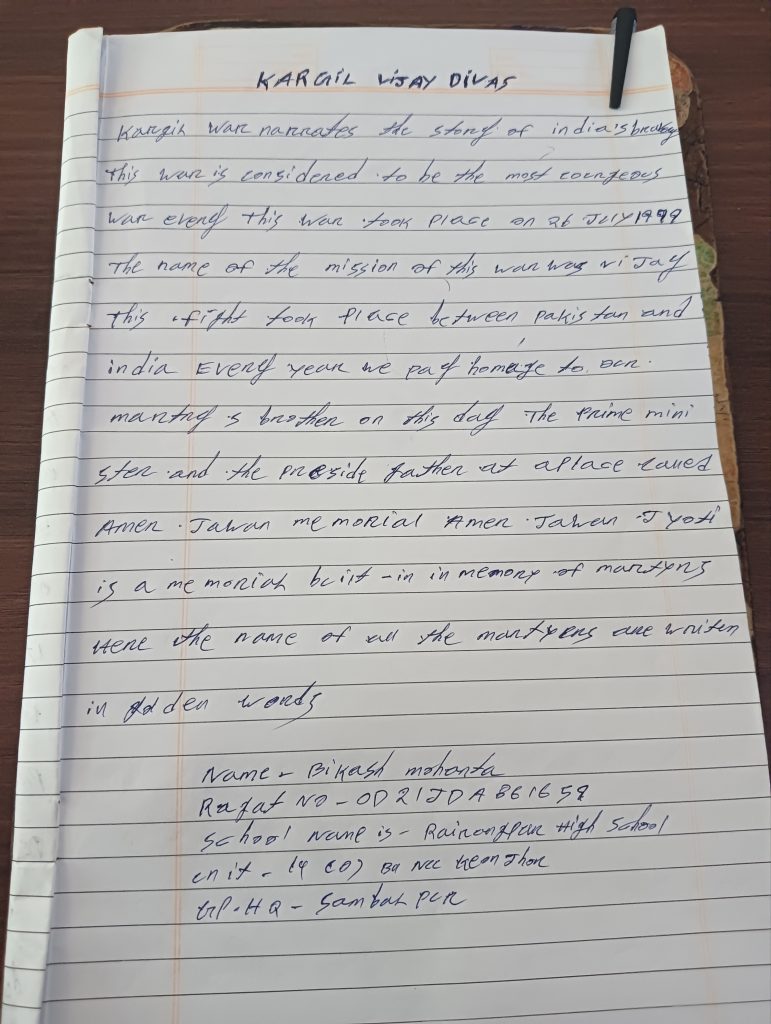 KARGIL VIJAY DIVAS
Kargil war narrates the story of india's bravery
This war is considered to be the most courgeous
war every This war took place on 26 July 1999
The name of the mission of this war was vi Jay
This fight took place between pakistan and
india Every year we pay homage to our
martry s brother on this day The prime mini
ster and the preside father at a place called
Amer Jawan memorial Amer Jawan Jyoti
is a memorial built in in memory of martyrs
Here the name of all the martyers are writen
in golden words
Name - Bikash mohanta
No - OD21JDA861659
School Name is - Rairangpur High School
unit - 14 (O) Bn NCC Keonjhor
GP-HQ - Sambalpur